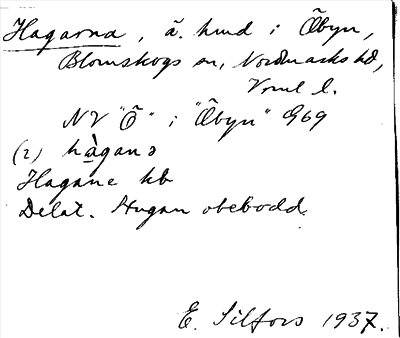 Hagarna, ä. hmd i Åbyn,
Blomskogs sn, Nordmarks hd,
Vrml l.
NV "Ö" i "Åbyn" G69
(2) hàganə
Hagane kb
Delat. Hagan obebodd.
E. Silfors 1937.